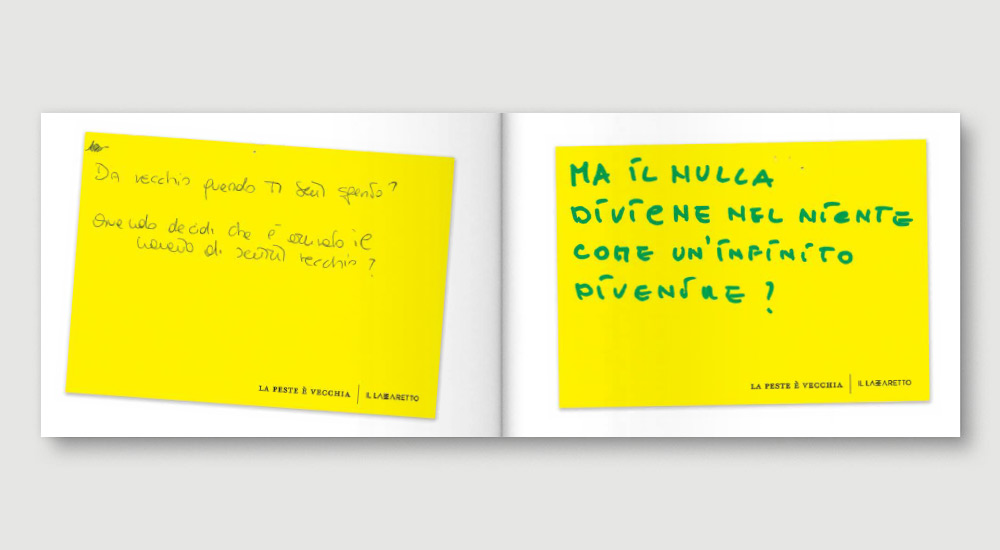 Da vecchio quando ti senti spento?
Quando decidi che è arrivato il
momento di sentirti vecchio?
LA PESTE È VECCHIA | IL LAZZARETTO
MA IL NULLA
DIVIENE NEL NIENTE
COME UN'INFINITO
DIVENIRE?
LA PESTE È VECCHIA | IL LAZZARETTO